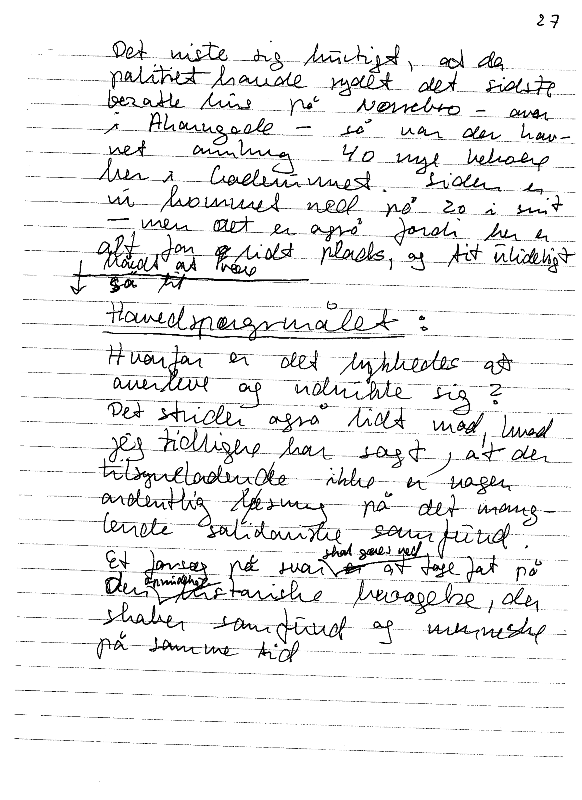 27
Det viste sig hurtigt, at da
politiet havde ryddet det sidste
besatte hus på Nørrebro – over
i Abelsgade – så var der hav-
net omkring 40 nye beboere
her i Siden er
vi kommet ned på 20 i snit
– men det er også fordi her er
alt for lidt plads, og tit ulideligt
at være
så tit
Hovedspørgsmålet :
Hvorfor er det lykkedes at
overleve og udvikle sig ?
Det strider også lidt mod, hvad
jeg tidligere har sagt, at der
tilsyneladende ikke er nogen
ordentlig løsning på det mang-
lende solidariske samfund.
skal søges ved
Et forsøg på svar er at tage fat på
Den historiske bevægelse, der
skaber samfund og menneske
på samme tid